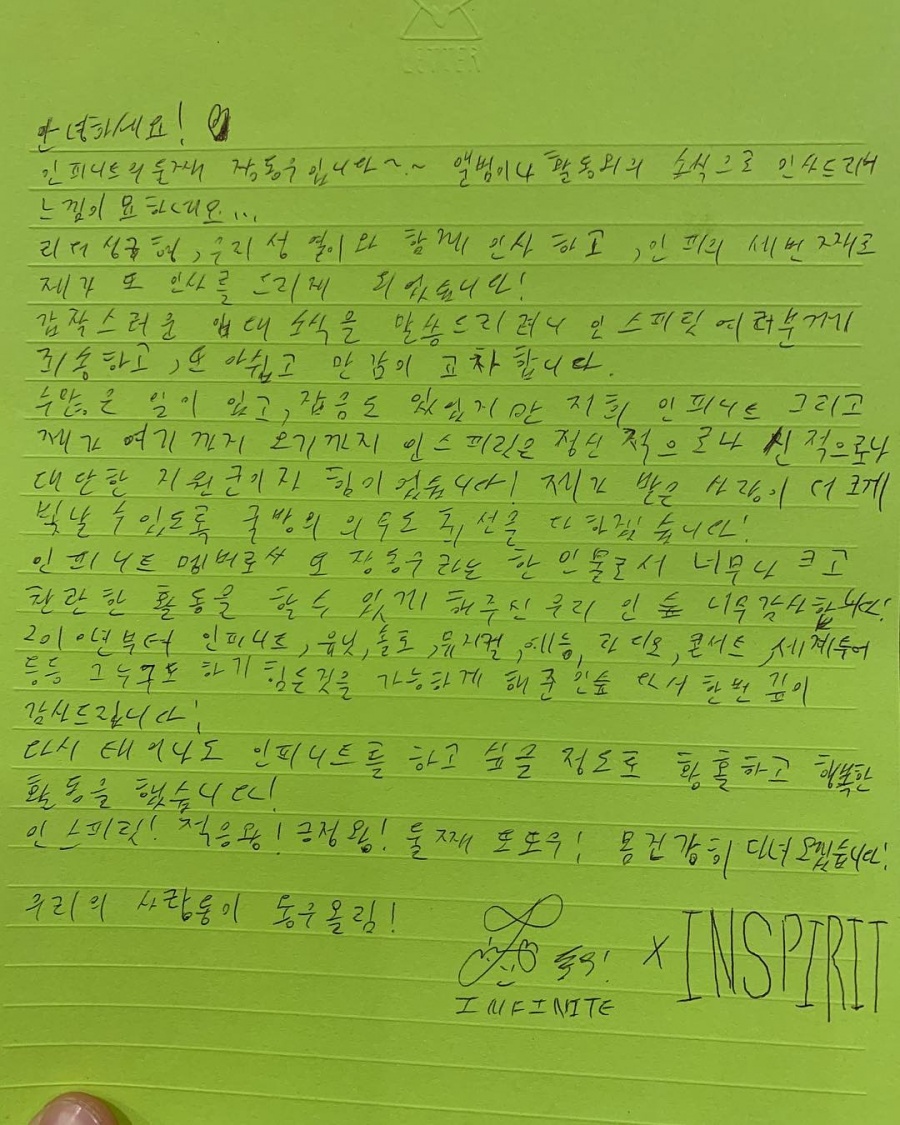 LETTER
안녕하세요!
인피니트의 둘째 장동우입니다~~ 앨범이나 활동외의 소식으로 인사드리니
느낌이 묘하네요...
리더 성규형, 우리 성열이와 함께 인사 하고, 인피의 세번째로
제가 또 인사를 드리게 되었습니다!
갑작스러운 입대 소식을 말씀드리려니 인스피릿 여러분께
죄송하고, 또 아쉽고 만감이 교차합니다.
수많은 일이 있고, 잡음도 있었지만 저희 인피니트 그리고
제가 여기까지 오기까지 인스피릿은 정신적으로나 신적으로나
대단한 지원군이자 힘이었습니다! 제가 받은 사랑이 더 크게
빛날 수 있도록 국방의 의무도 최선을 다하겠습니다!
인피니트 멤버로서 또 장동우라는 한 인물로서 너무나 크고
찬란한 활동을 할수 있게 해주신 우리 인숲 너무감사합니다!
2010년부터 인피니트, 유닛, 솔로, 뮤지컬, 예능, 라디오, 콘서트, 세계투어
등등 그누구도 하기 힘든것을 가능하게 해준 인숲 다시한번 깊이
감사드립니다!
다시 태어나도 인피니트를 하고 싶을 정도로 황홀하고 행복한
활동을 했습니다!
인스피릿! 적응왕! 긍정왕! 둘째 또또우! 몸건강히 다녀오겠습니다!
우리의 사랑둥이 동우올림!
동우! X INSPIRIT
INFINITE